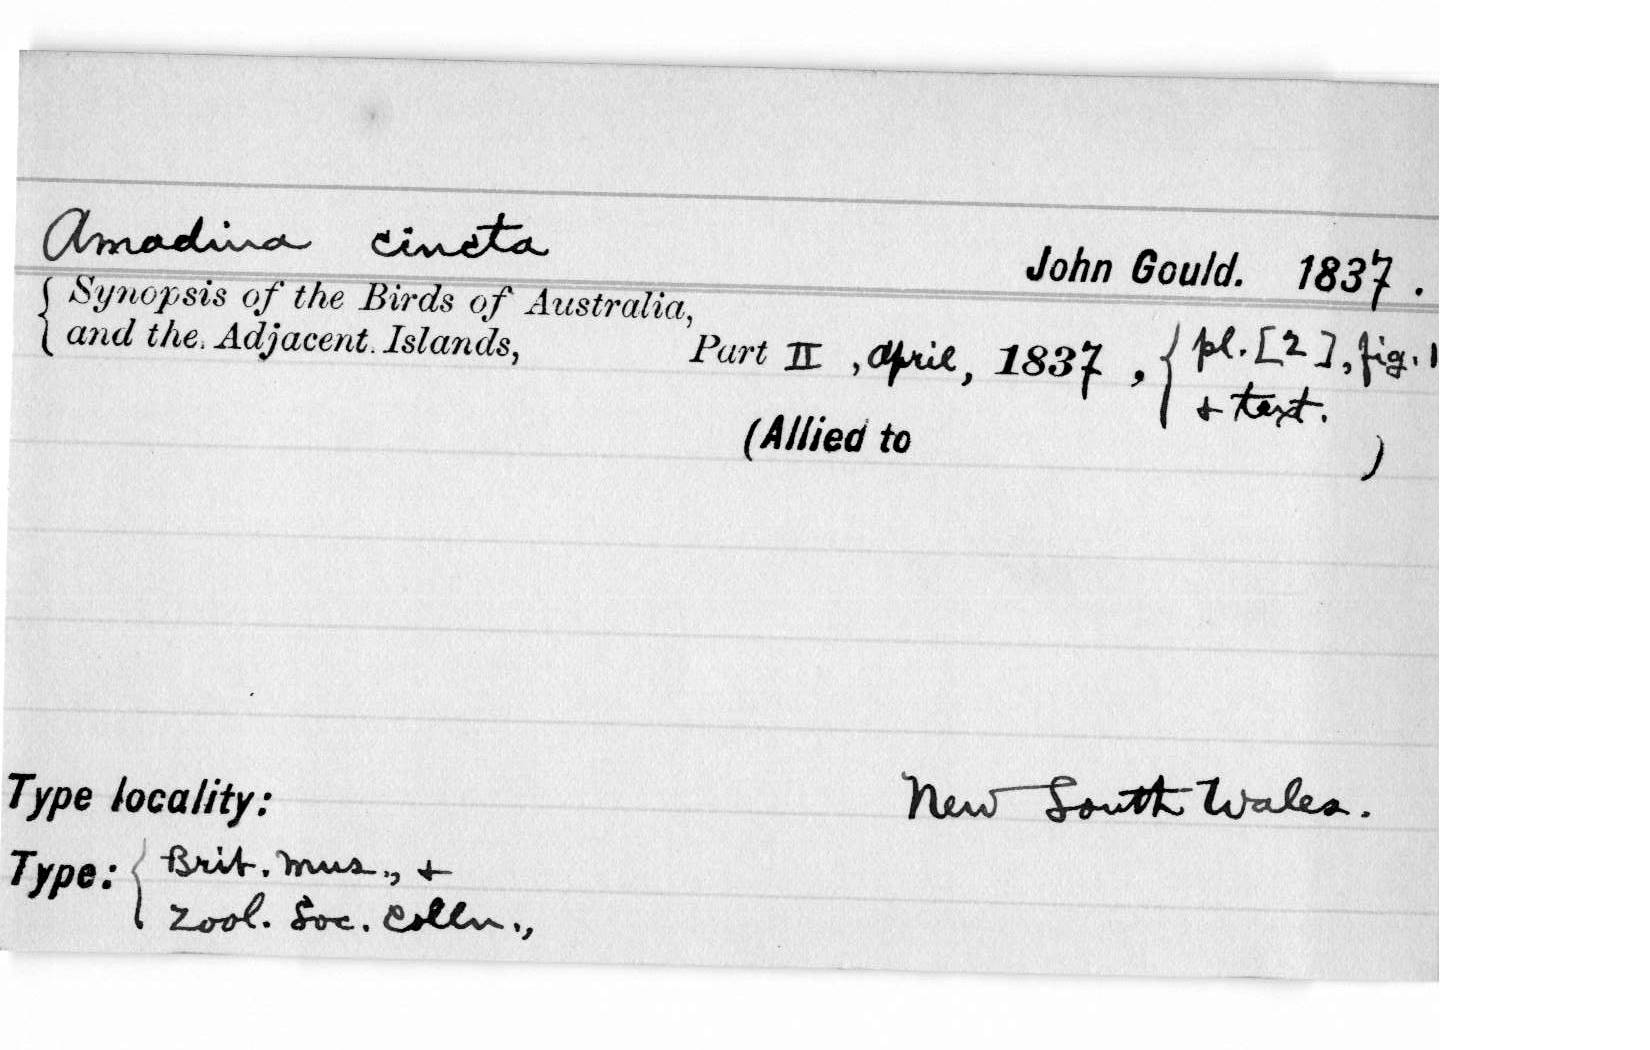 Amadina cincta
John Gould. 1837.
{ Synopsis of the Birds of Australia,
and the Adjacent Islands, Part II, April, 1837, { pl. [2], fig. 1
& text.
(Allied to )
Type locality: New South Wales.
Type: { Brit. Mus., &
Zool. Soc. Colln.,